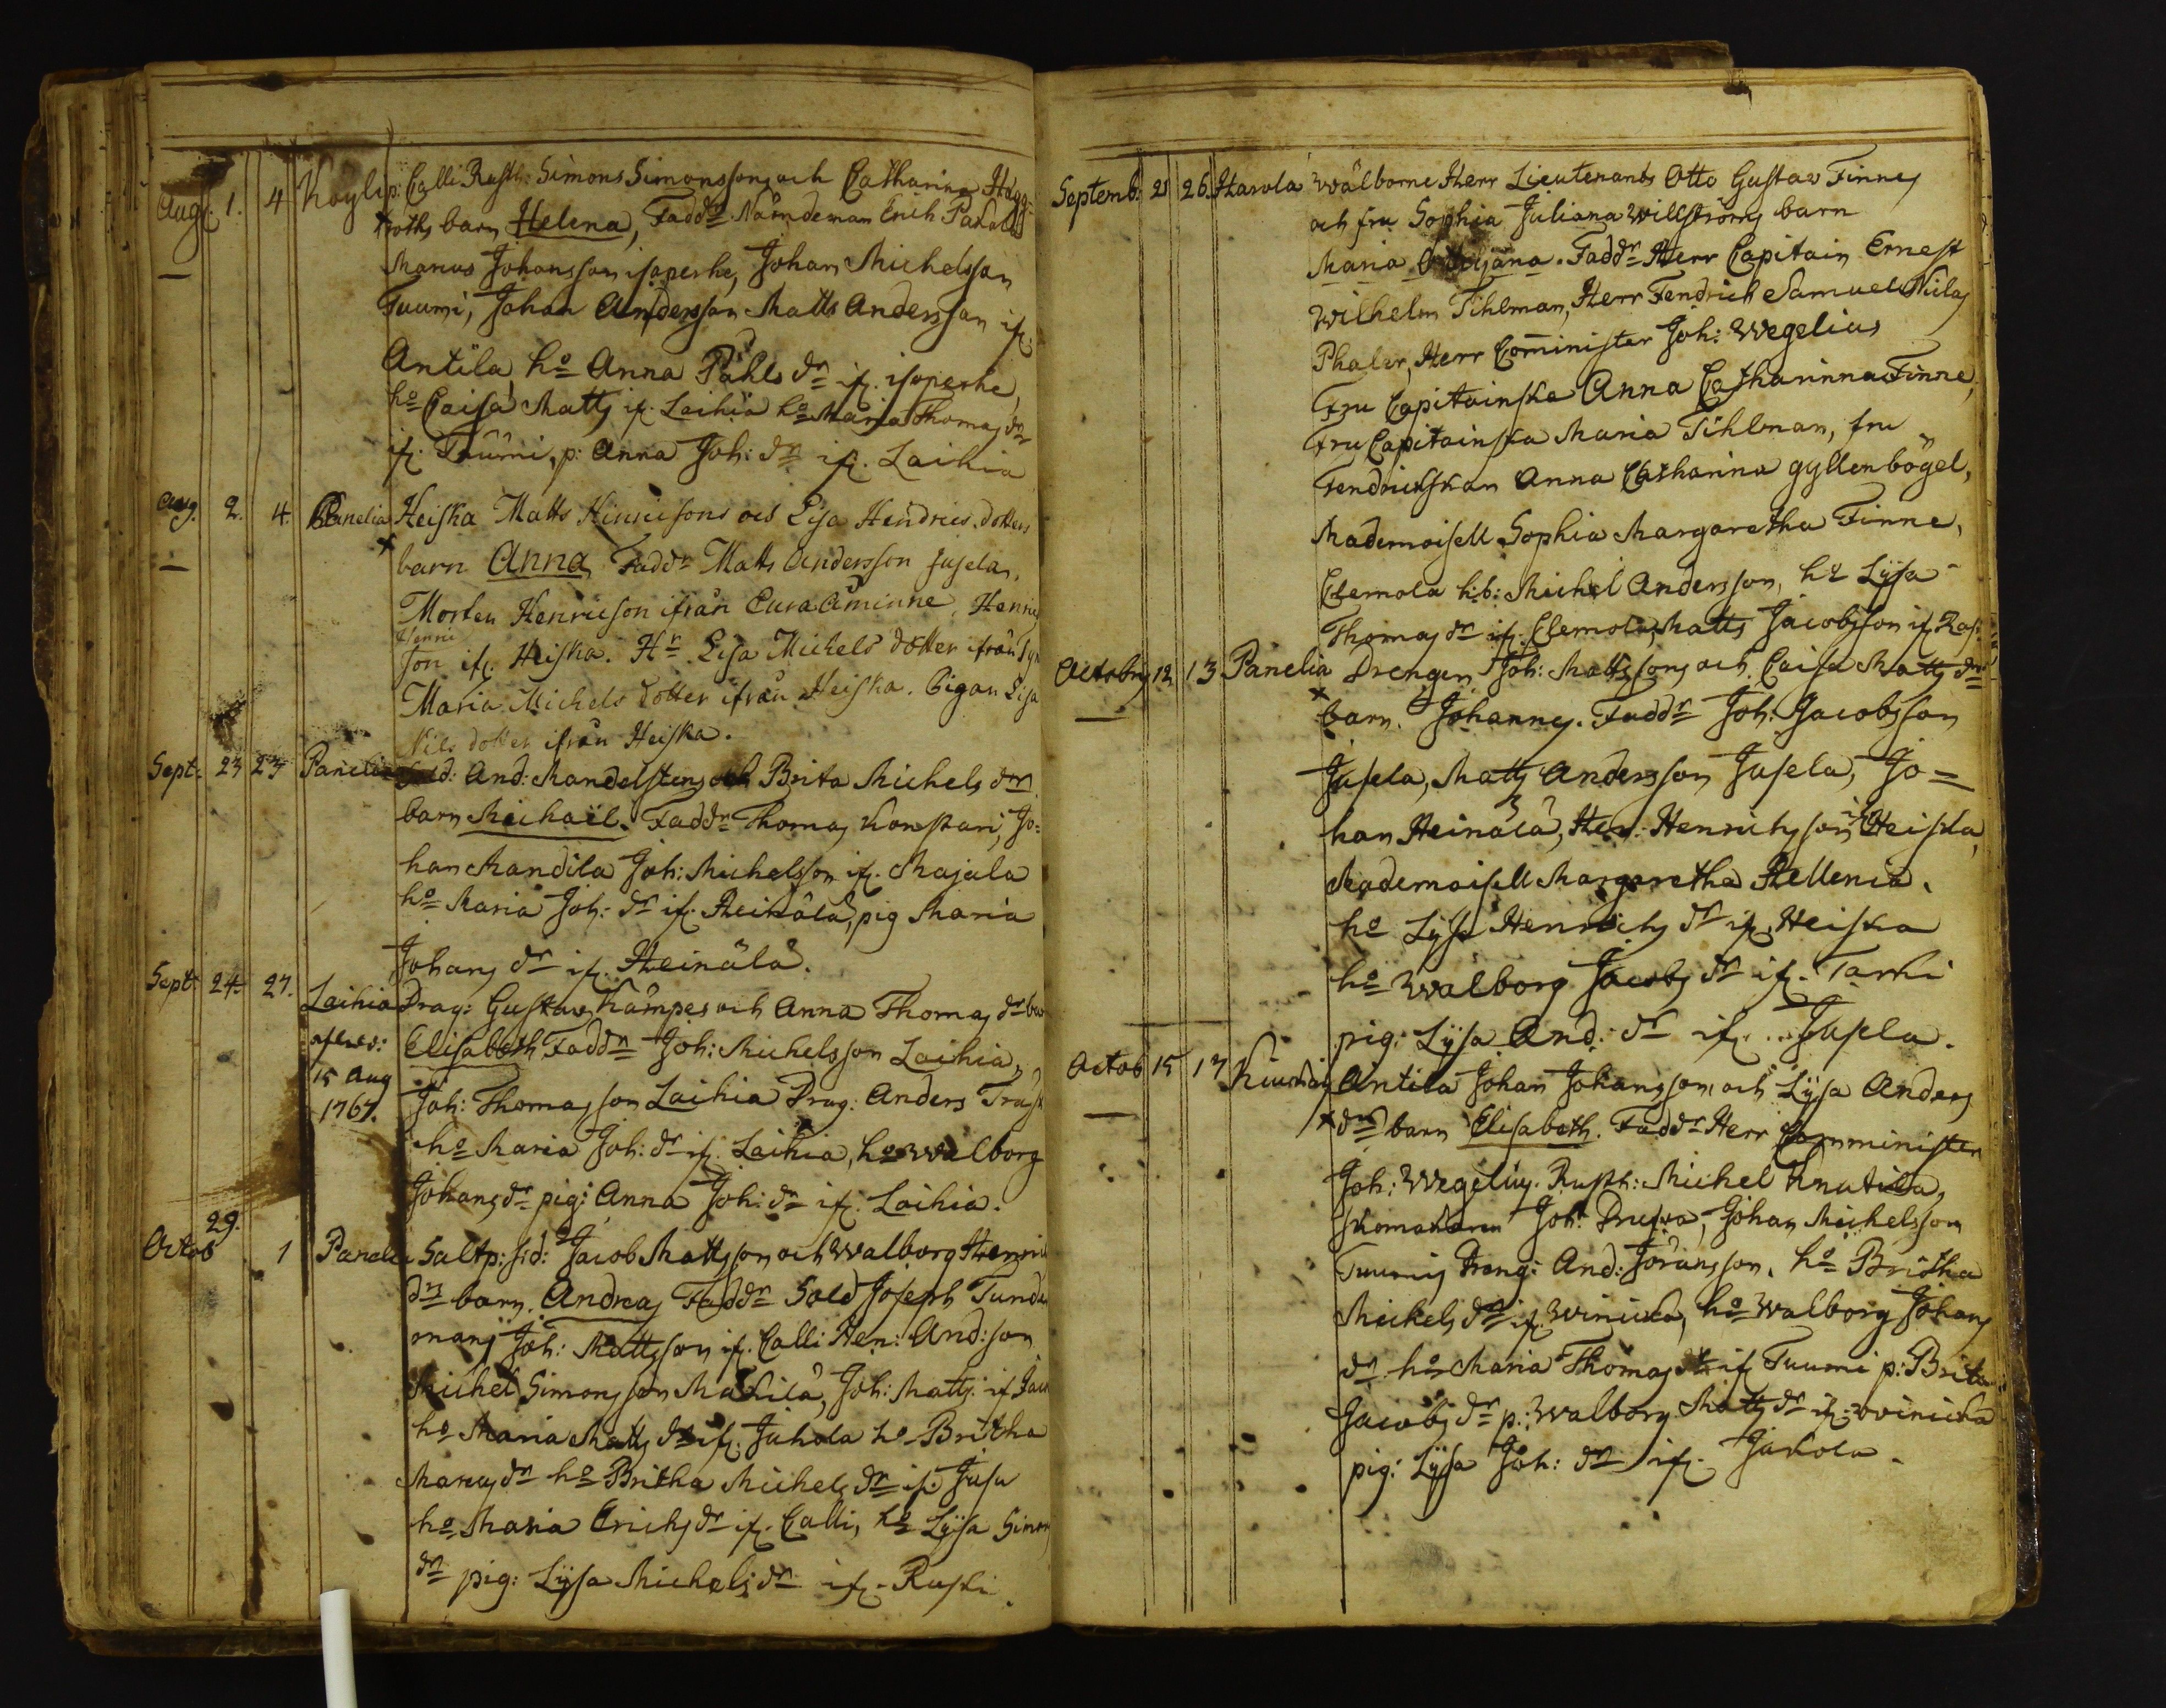 Aug. 1. 4 Köylip: Calli Rusth: Simons Simonssons och Catharina Hägg:
roths barn Helena, Faddr Nämdeman Erich Pakola
Marcus Johansson isoperhe, Johan Michelsson
Tuumi, Johan Andersson Matts Andersson if.
Antila ho Anna Påhls dr if. isoperhe,
ho Caisa Matts if. Laihia ho Maria Thomas dr
if. Tuumi, p: Anna Joh: dr if. Laihia
Aug. 2. 4. Panelia Heiska Matts Hinricsons och Lisa Hendrics dotters
barn Anna, Faddr Matts Andersson Jusela,
Morten Henricson ifrån Eura Åminne, Henric
Henric
son if. Heiska. Hr Lisa Michels dotter ifrån
Maria Michels dotter ifrån Heiska. Pigan Lisa
Nils dotter ifrån Heiska.
Sept. 23 27 Panelia Sold: And: Mandelstens och Brita Michels dr
barn Michaël. Faddr Thomas Konstari, Jo:
han Mandila Joh: Michelsson if. Majala
ho Maria Joh: dr if. Heinälä, pig Maria
Johans dr if. Heinälä.
Sept. 24. 27. Laihia Drag: Gustav Kämpes och Anna Thomas dr barn
Elisabeth Faddr Joh: Michelsson Laihia,
15 Aug Joh: Thomasson Laihia Drag: Anders
1767. ho Maria Joh: dr if. Laihia, ho Walborg
Johans dr pig: Anna Joh: dr if. Laihia.
Octob 29. 1 Panelia Saltp: sjd: Jacob Mattsson och Walborg Henric
dr barn. Andreas Faddr Sold Joseph
man, Joh: Mattsson if. Calli Hen: And:son
Michel Simonsson Mattila, Joh: Matts: if
ho Maria Matts dr if. Juhola ho Britha
Marcus dr ho Britha Michels dr if. Jusu
ho Maria Erichs dr if. Calli, ho Lijsa Simons
dr pig: Lijsa Michels dr if. Ruski.
Septemb: 21 26. Harola Wälborne Herr Lieutenants Otto Gustav Finnes
och fru Sophia Juliana Willströms barn
Maria Faddr Herr Capitain Ernest
Wilhelm Tihlman, Herr Fendrich Samuel Niclas
Phaler, Herr Comminister Joh: Wegelius
Fru Capitainska Anna Catharinna Finne,
Fru Capitainska Maria Tihlman, fru
Fendrickskan Anna Catharina gyllenbögel,
Mademoisell Sophia Margaretha Finne,
Clemola hb: Michel Andersson, ho Lijsa
Thomas dr if. Clemola, Matts Jacobsson if.
Octobr 12 13 Panelia Drengen Joh: Mattssons och Caisa Matts dr
barn. Johannes. Faddr Joh: Jacobsson
Jusela, Matts Andersson Jusela, Jo=
han Heinälä, Hen: Henrichsson Heiska,
Mademoisell Margaretha Hellenia.
ho Lijsa Henrichs dr if. Heiska
ho Walborg Jacobs dr if. Tarki
pig: Lijsa And: dr if. Jusela.
Octob 15 17 Kiukais Antila Johan Johanssons och Lijsa Anders
dr barn Elisabeth. Faddr Herr Comminister
Joh: Wegelius. Rusth: Michel Knutila,
Skomakaren Joh: Johan Michelsson
Tuumi Dreng: And: Jöransson, ho Britha
Michels dr if. Winicka, ho Walborg Johans
dr ho Maria Thomas dr if. Tuumi p: Brita
Jacobs dr p: Walborg Matts dr if. Winicka
pig: Lijsa Joh: dr if. Jakola.